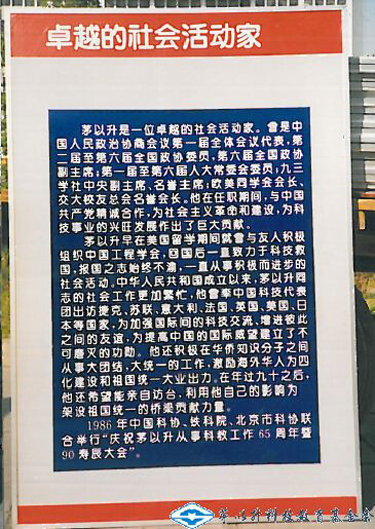 卓越的社会活动家
茅以升是一位卓越的社会活动家。曾是中
国人民政治协商会议第一届全体会议代表,第
二届至第六届全国政协委员,第六届全国政协
副主席;第一届至第六届人大常委会委员;九三
学社中央副主席、名誉主席;欧美同学会会长、
交大校友总会名誉会长。他在任职期间,与中国
共产党精诚合作,为社会主义革命和建设,为科
技事业的兴旺发展作出了巨大贡献。
茅以升早在美国留学期间就曾与友人积极
组织中国工程学会,回国后一直致力于科技救
国,报国之志始终不渝,一直从事积极而进步的
社会活动。中华人民共和国成立以来,茅以升同
志的社会工作更加繁忙,他曾率中国科技代表
团出访捷克、苏联、意大利、法国、英国、美国、日
本等国家,为加强国际间的科技交流,增进彼此
之间的友谊,为提高中国的国际威望建立了不
可磨灭的功勋。他还积极在华侨知识分子之间
从事大团结,大统一的工作,激励海外华人为四
化建设和祖国统一大业出力。在年过九十之后,
他还希望能亲自访台,利用他自己的影响为
架设祖国统一的桥梁贡献力量。
1986年中国科协、铁科院、北京市科协联
合举行“庆祝茅以升从事科教工作65周年暨
90寿辰大会”。
茅以升科技教育基金会